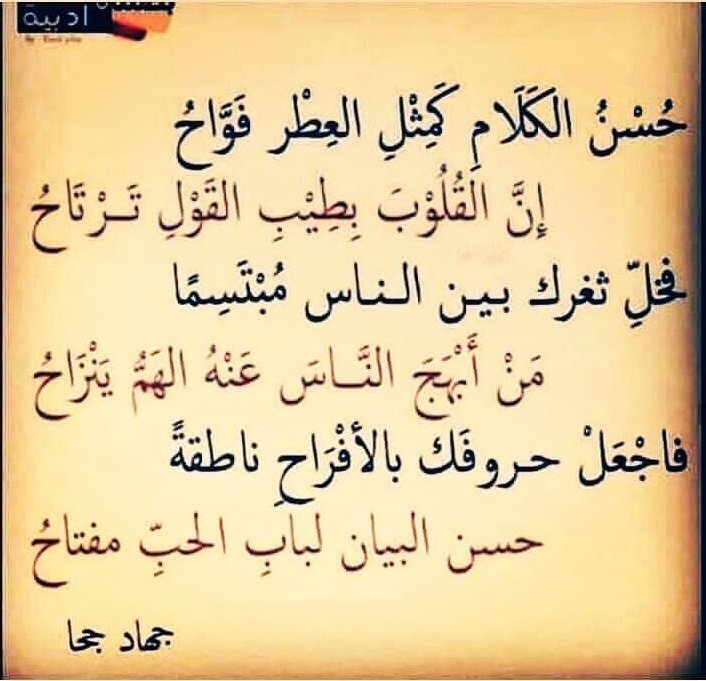 أدبية
حُسْنُ الكَلَامِ كَمِثْلِ العِطْر فَوَّاحُ
إِنَّ القُلُوْبَ بِطِيْبِ القَوْلِ تَـرْتَاحُ
فخلِّ ثغرك بـيـن الـنـاس مُبْتَسِمًا
مَنْ أَبْهَجَ النَّـاسَ عَنْهُ الهَمُّ يَنْزَاحُ
فاجْعَلْ حـروفَك بالأفْرَاحِ ناطقةً
حسن البيان لبابِ الحبِّ مفتاحُ
جهاد جحا